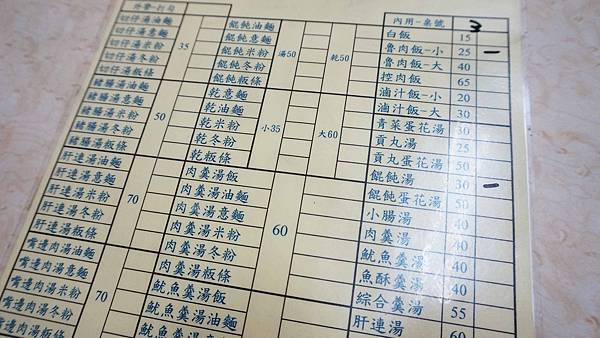 外帶-打勾
切仔湯油麵
切仔湯意麵
切仔湯米粉
切仔湯冬粉
切仔湯粄條
35
豬腸湯油麵
豬腸湯意麵
豬腸湯米粉
豬腸湯冬粉
豬腸湯粄條
50
肝連湯油麵
肝連湯意麵
肝連湯米粉
肝連湯冬粉
肝連湯粄條
70
嘴邊肉湯油麵
嘴邊肉湯意麵
嘴邊肉湯米粉
嘴邊肉湯冬粉
嘴邊肉湯粄條
70
餛飩油麵
餛飩意麵
餛飩米粉
餛飩冬粉
餛飩粄條
湯50
乾50
乾意麵
乾油麵
乾米粉
乾冬粉
乾粄條
小35
大60
肉羹湯飯
肉羹湯油麵
肉羹湯意麵
肉羹湯米粉
肉羹湯冬粉
肉羹湯粄條
60
魷魚羹湯飯
魷魚羹湯油麵
魷魚羹湯意麵
內用-桌號 3
白飯 15
魯肉飯-小 25 –
魯肉飯-大 40
控肉飯 65
滷汁飯-小 20
滷汁飯-大 30
青菜蛋花湯 30
貢丸湯 25
貢丸蛋花湯 50
餛飩湯 30 –
餛飩蛋花湯 50
小腸湯 40
肉羹湯 40
魷魚羹湯 40
魚酥羹湯 40
綜合羹湯 55
肝連湯 60